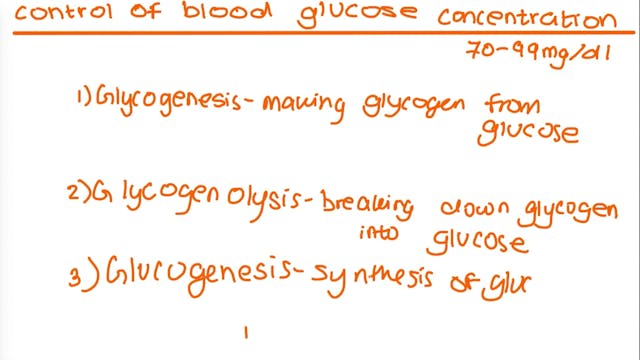 control of blood glucose concentration
70-99mg/dl
1) Glycogenesis - making glycogen from
glucose
2) Glycogenolysis - breaking down glycogen
into glucose
3) Glucogenesis - synthesis of gluc